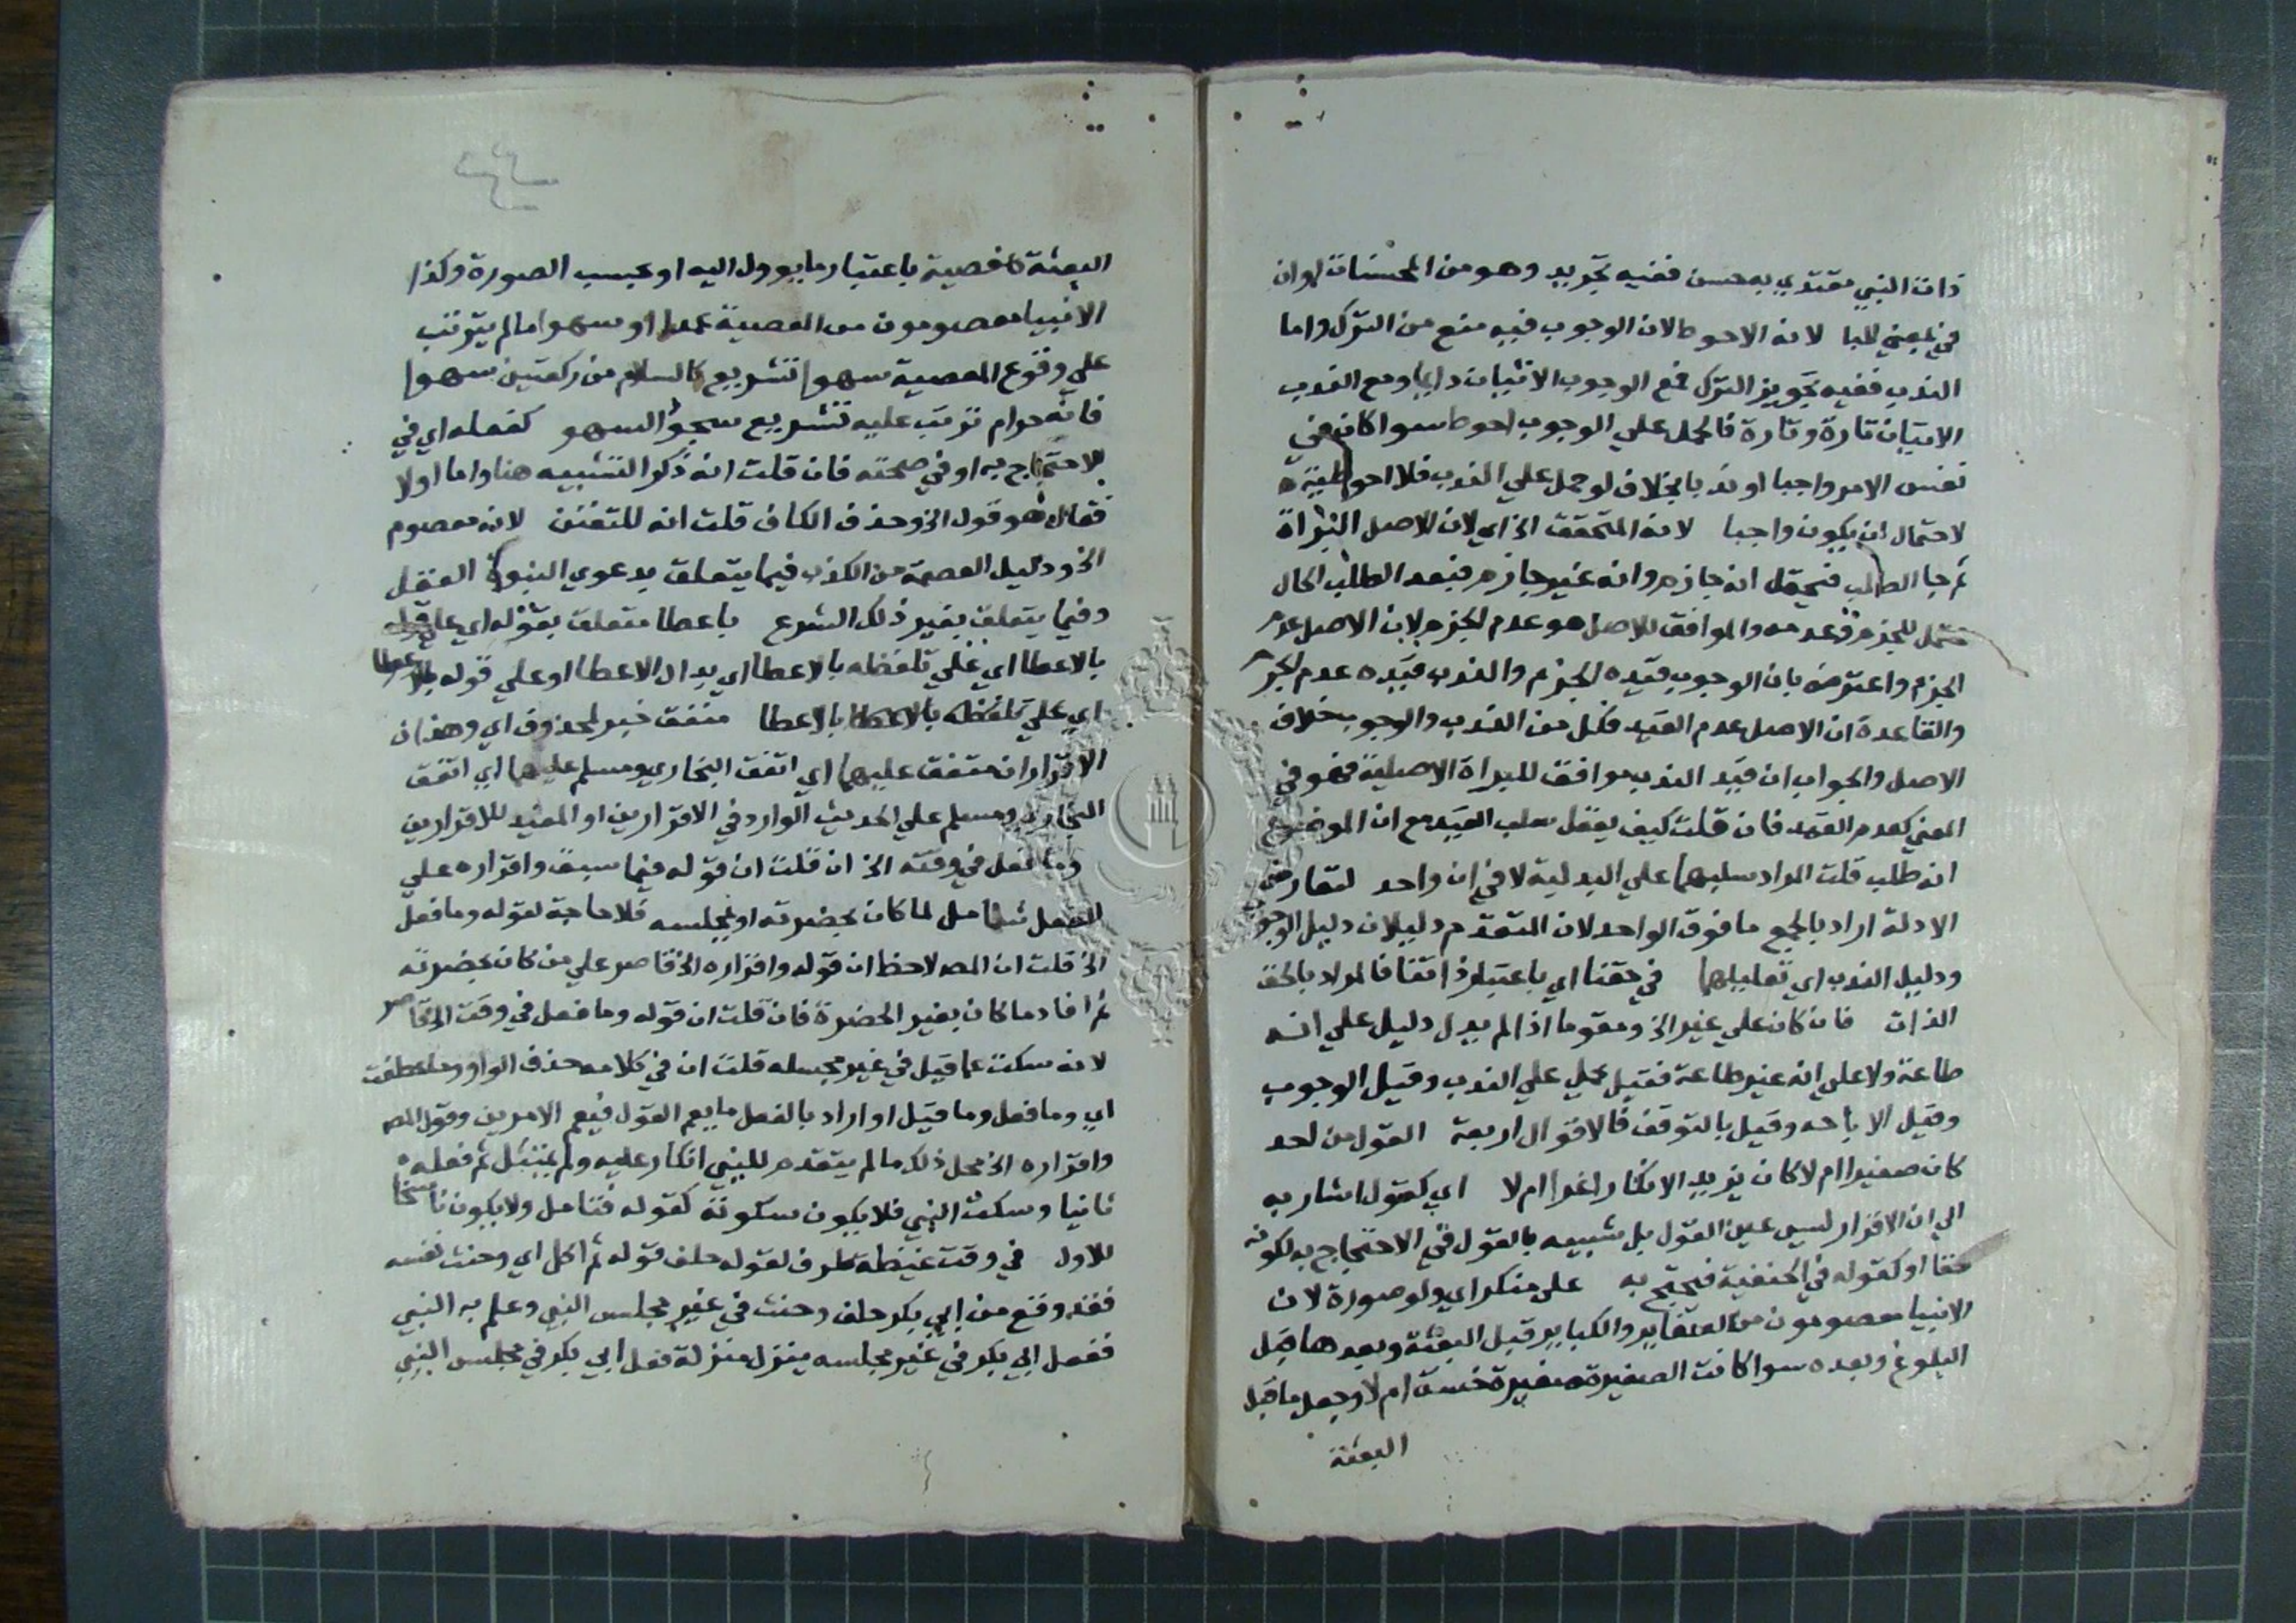 ذات النبي مقتدي به حسن ففيه تجريد وهو من المحسنات اوان
في بمعني للبا لانه الاحوط لان الوجوب فيه منع من الترك واما
الندب ففيه تجويز الترك فمع الوجوب الاتيان دايما ومع الندب
الاتيان تارة وتارة فالحمل علي الوجوب احوط سوا كان في
نفس الامر واجبا او ندبا بخلاف لو حمل علي الندب فلا احوطية
لاحتمال ان يكون واجبا لانه المتحقق الخ اي لان الاصل البراة
ثم جا الطلب فيحتمل انه جازم وانه غير جازم فبعد الطلب الحال
محتمل للجزم وعدمه والموافق للاصل هو عدم الجزم لان الاصل عدم
الجزم واعترض بان الوجوب قيده الجزم والندب قيده عدم الجزم
والقاعدة ان الاصل عدم القيد فكل من الندب والوجوب خلاف
الاصل والجواب ان قيد الندب موافق للبراة الاصلية فهو في
المعني كعدم القيد فان قلت كيف يعقل سلب القيد مع ان الموضوع
انه طلب قلت المراد سلبهما علي البدلية لا في ان واحد لتعارض
الادلة اراد بالجمع ما فوق الواحد لان المتقدم دليلان دليل الوجوب
ودليل الندب اي تعليلهما في حقنا اي باعتبار ذاتنا فالمراد بالحق
الذات فان كان علي غير الخ ومقوما اذا لم يدل دليل علي انه
طاعة ولا علي انه غير طاعة فقيل يحمل علي الندب وقيل الوجوب
وقيل الاباحه وقيل بالتوقف فالاقوال اربعة القول من احد
كان صغيرا ام لا كان يزيد الانكار اغرا ام لا اي كقول اشار به
الي ان الاقرار ليس عين القول بل شبيه بالقول في الاحتجاج به لكونه
حقا او كقوله في الحنفية فيحتج به علي منكر اي ولو صورة لان
الانبيا معصومون من الصغاير والكباير قبل البعثة وبعدها قبل
البلوغ وبعده سوا كانت الصغيرة صغيرة خسة ام لا وجعل ما قبل
البعثة
البعثة معصية باعتبار ما يوول اليه او بحسب الصورة وكذا
الانبيا معصومون من المعصية عمدا او سهوا ما لم يترتب
علي وقوع المعصية سهوا تشريع كالسلام من ركعتين سهوا
فانه حرام ترتب عليه تشريع سجود السهو كفعله اي في
الاحتجاج به او في صحته فان قلت انه ذكر التشبيه هنا واما اولا
فقال هو قول الخ وحذف الكاف قلت انه للتفنن لانه معصوم
الخ ودليل العصمة من الكذب فيما يتعلق بدعوي النبوة العقل
وفيما يتعلق بغير ذلك الشرع باعطا متعلق بقوله اي علي قوله
بالاعطا اي علي تلفظه بالاعطا اي بدال الاعطا او علي قوله بالاعطا
اي علي تلفظه بالاعطا بالاعطا متفق خبر لمحذوف اي وهذان
الاقراران متفق عليهما اي اتفق البخاري ومسلم عليهما اي اتفق
البخاري ومسلم علي الحديث الوارد في الاقرارين او المفيد للاقرارين
وما فعل في وقته الخ ان قلت ان قوله فيما سبق واقراره علي
الفعل شامل لما كان بحضرته او بمجلسه فلا حاجة لقوله وما فعل
الخ قلت ان المص لاحظ ان قوله واقراره الخ قاصر علي من كان بحضرته
ثم افاد ما كان بغير الحضرة فان قلت ان قوله وما فعل في وقت الخ قاصر
لانه سكت عما قيل في غير مجلسه قلت ان في كلامه حذف الواو وما عطفت
اي وما فعل وما قيل او اراد بالفعل ما يعم القول فيعم الامرين وقول المص
واقراره الخ محل ذلك ما لم يتقدم للنبي انكار عليه ولم يمتثل ثم فعله
ثانيا وسكت النبي فلا يكون سكوته كقوله فتامل ولا يكون ناسخا
للاول في وقت غيظه ظرف لقوله حلف قوله ثم اكل اي وحنث نفسه
فقد وقع من ابي بكر حلف وحنث في غير مجلس النبي وعلم به النبي
ففعل ابي بكر في غير مجلسه ينزل منزلة فعل ابي بكر في مجلس النبي